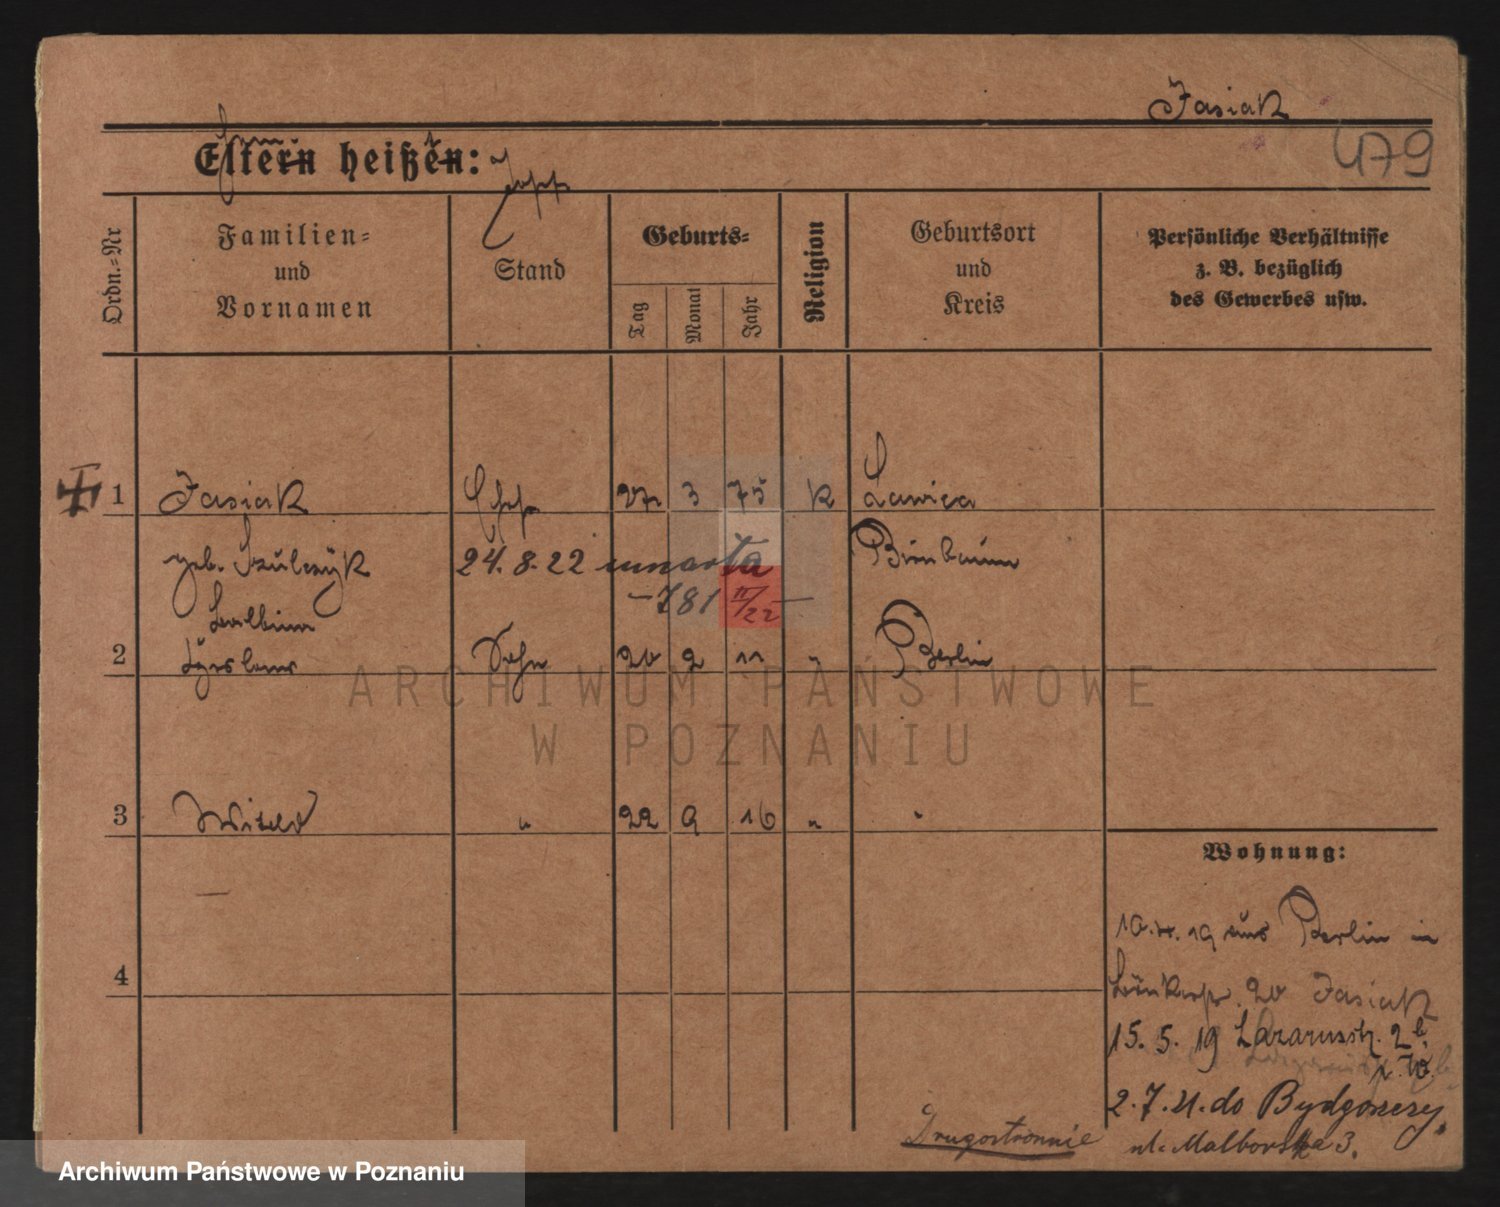 Jasiak
479
Eltern heißen:
Ordn.=Nr
Familien=
und
Vornamen
Stand
Geburts=
Tag
Monat
Jahr
Religion
Geburtsort
und
Kreis
Persönliche Verhältnisse
z. B. bezüglich
des Gewerbes usw.
1 Jasiak 27 3 75 k Lawica
geb. Szulczyk 24.8.22 umarła Birnbaum
-781 II/22-
Balbina
2 Sohn 20 2 11 " Berlin
3 Witold " 22 9 16 " "
4
Wohnung:
19 aus Berlin in
20 Jasiak
15. 5. 19 Lazarusstr. 2
2.7.21. do Bydgoszczy,
ul. Malborska 3.
Drugostronnie
ARCHIWUM PAŃSTWOWE
W POZNANIU
Archiwum Państwowe w Poznaniu